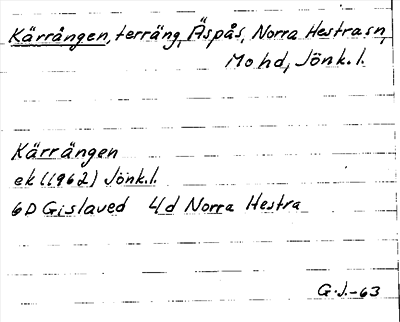 Kärrången, terräng, Äspås, Norra Hestra sn,
Mo hd, Jönk. l.
Kärrängen
ek (1962) Jönk.l.
6D Gislaved 4d Norra Hestra
G.J.-63